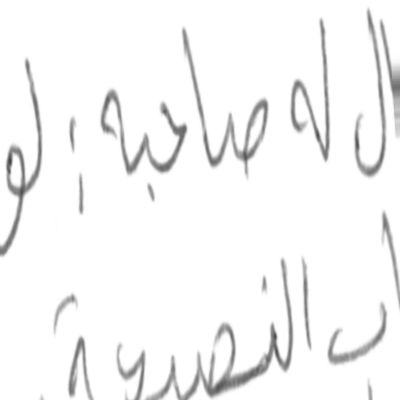 ال له صاحبه: لو
النصيحة